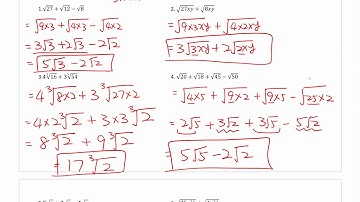 1. √27 + √12 − √8
= √9×3 + √4×3 − √4×2
= 3√3 + 2√3 − 2√2
= 5√3 − 2√2
2. √27xy + √8xy
= √9×3xy + √4×2xy
= 3√3xy + 2√2xy
3. 4∛16 + 3∛54
= 4∛8×2 + 3∛27×2
= 4×2∛2 + 3×3∛2
= 8∛2 + 9∛2
= 17∛2
4. √20 + √18 + √45 − √50
= √4×5 + √9×2 + √9×5 − √25×2
= 2√5 + 3√2 + 3√5 − 5√2
= 5√5 − 2√2